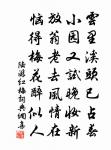 雲里溪頭已占春
小園又試晚妝新
放翁老去風情在
惱得梅花醉似人
陸游紅梅詞典網書